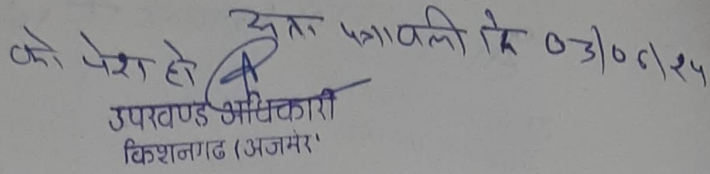 अतः पत्रावली दि 03/06/24
को पेश हो
उपखण्ड अधिकारी
किशनगढ (अजमेर'